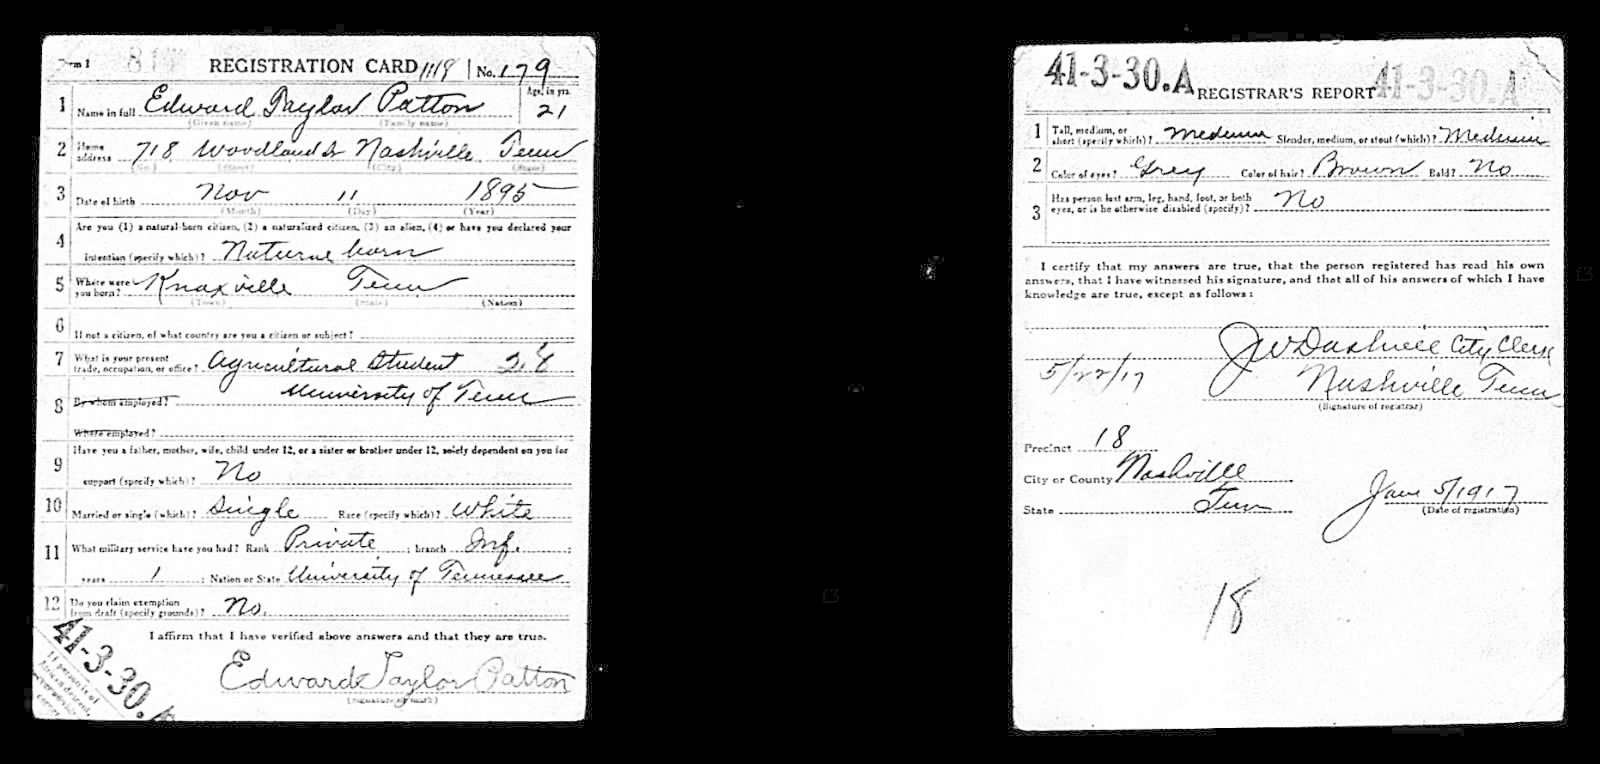 Form 1 817 REGISTRATION CARD 1119 No. 179
1 Name in full Edward Taylor Patton Age, in yrs. 21
(Given name) (Family name)
2 Home address 718 Woodland St Nashville Tenn
(No.) (Street) (City) (State)
3 Date of birth Nov 11 1895
(Month) (Day) (Year)
4 Are you (1) a natural-born citizen, (2) a naturalized citizen, (3) an alien, (4) or have you declared your
intention (specify which)? Natural born
5 Where were you born? Knoxville Tenn
(Town) (State) (Nation)
6 If not a citizen, of what country are you a citizen or subject?
7 What is your present trade, occupation, or office? Agricultural Student
8 By whom employed? University of Tenn
Where employed?
9 Have you a father, mother, wife, child under 12, or a sister or brother under 12, solely dependent on you for
support (specify which)? No
10 Married or single (which)? Single Race (specify which)? White
11 What military service have you had? Rank Private ; branch Inf. ;
years 1 ; Nation or State University of Tennessee
12 Do you claim exemption from draft (specify grounds)? No.
I affirm that I have verified above answers and that they are true.
Edward Taylor Patton
(Signature or mark)
41-3-30.A
If person is of
African descent,
corner
41-3-30.A REGISTRAR'S REPORT 41-3-30.A
1 Tall, medium, or short (specify which)? Medium Slender, medium, or stout (which)? Medium
2 Color of eyes? Grey Color of hair? Brown Bald? No
3 Has person lost arm, leg, hand, foot, or both eyes, or is he otherwise disabled (specify)? No
I certify that my answers are true, that the person registered has read his own
answers, that I have witnessed his signature, and that all of his answers of which I have
knowledge are true, except as follows:
J W Dashiell City Clerk
5/22/17 Nashville Tenn
(Signature of registrar)
Precinct 18
City or County Nashville
State Tenn June 5/1917
(Date of registration)
18